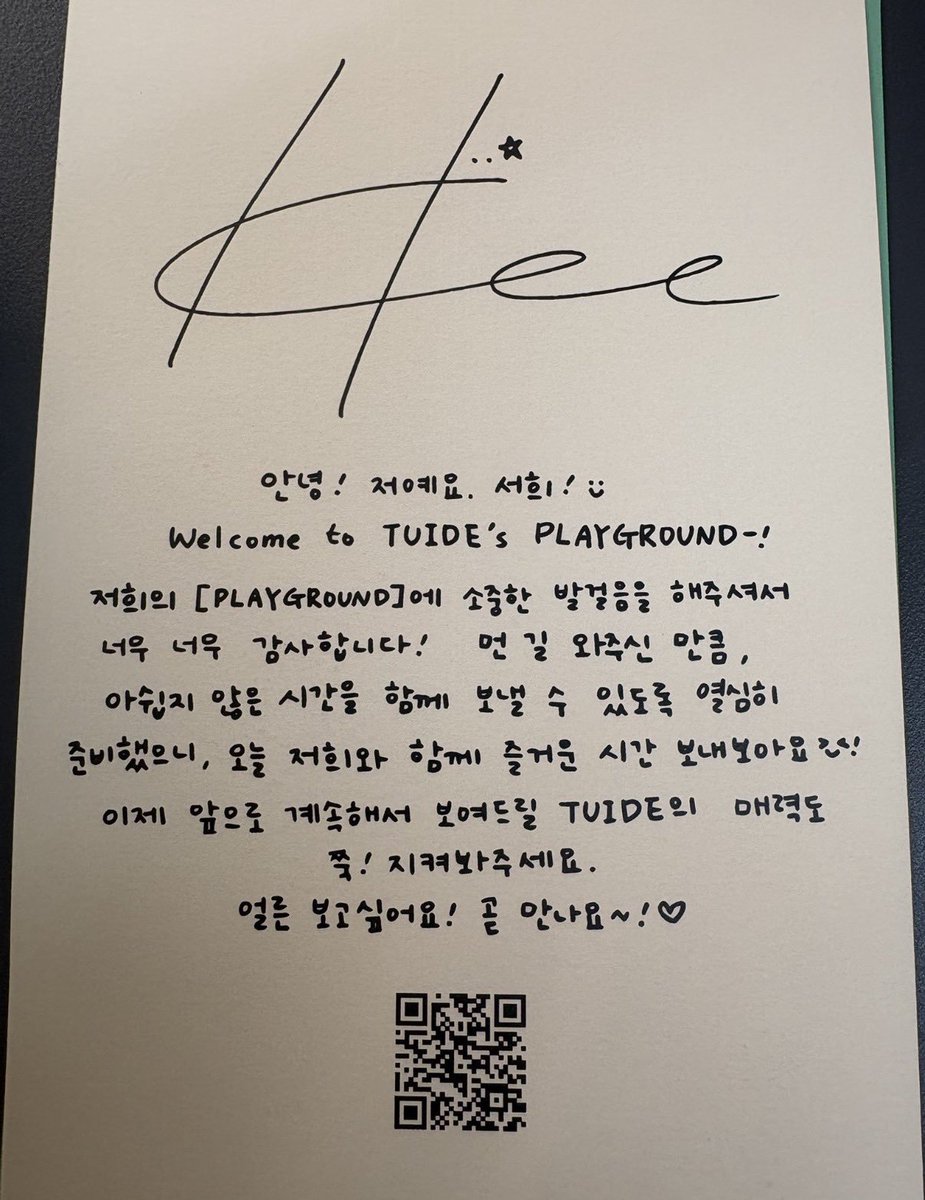 Hee
안녕! 저예요. 서희!
Welcome to TUIDE's PLAYGROUND-!
저희의 [PLAYGROUND]에 소중한 발걸음을 해주셔서
너무 너무 감사합니다! 먼 길 와주신 만큼,
아쉽지 않은 시간을 함께 보낼 수 있도록 열심히
준비했으니, 오늘 저희와 함께 즐거운 시간 보내보아요!
이제 앞으로 계속해서 보여드릴 TUIDE의 매력도
쭉! 지켜봐주세요.
얼른 보고싶어요! 곧 만나요~!♡